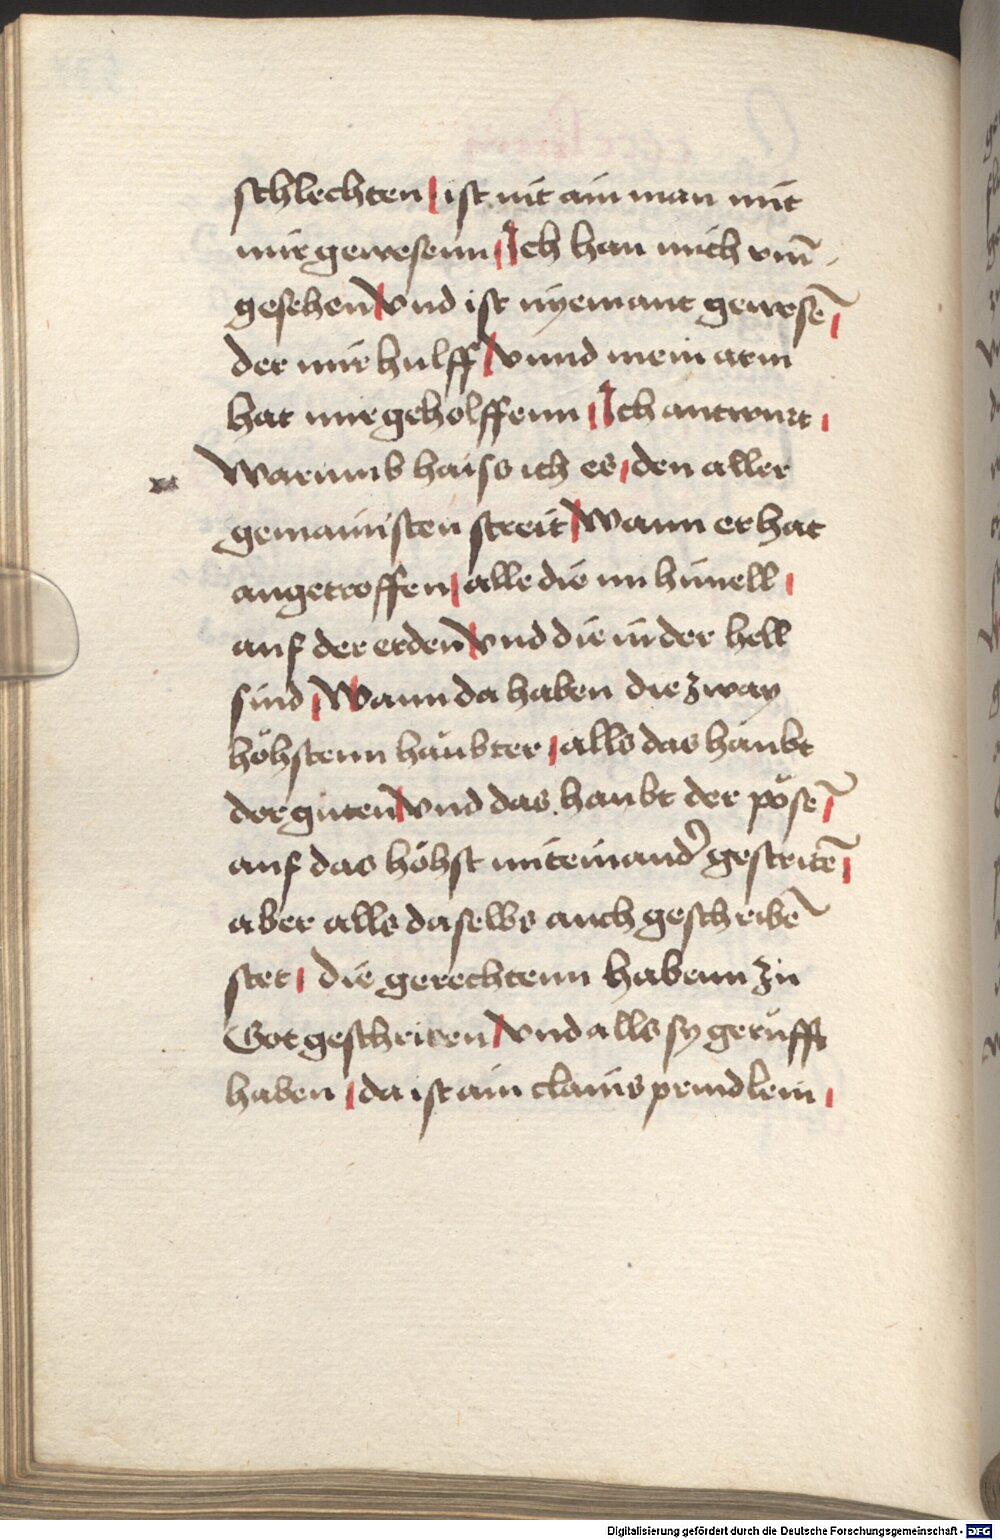 schlechten / ist nit ain man mit
mir gewesenn / Ich han mich vm̄
gesehen / vnd ist nyemant gewesē /
der mir hulff / vnnd mein arm
hat mir geholffenn / Ich antwurt /
Warumb haiss ich es / den aller
gemainisten streit / Wann er hat
angetroffen / alle die im himell /
auf der erden / vnd die in der hell
sind / Wann da haben die zway
höhstenn häubter / alls das haubt
der guten / vnd das haubt der pösē /
auf das höhst miteinand' gestritē /
aber alls daselbs auch geschribē
stet / die gerechtenn habenn zu
Got geschriren / vnd alls sy gerüfft
haben / da ist ain clains prindlein /
Digitalisierung gefördert durch die Deutsche Forschungsgemeinschaft - DFG